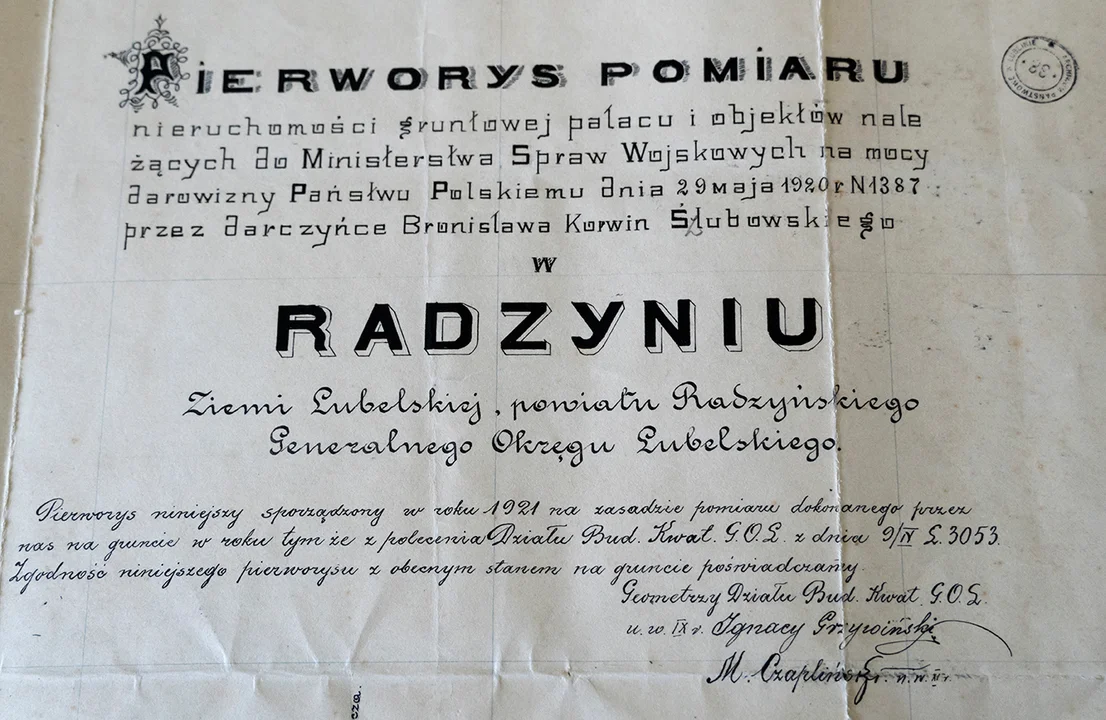 PIERWORYS POMIARU
nieruchomości gruntowej pałacu i objektów nale
żących do Ministerstwa Spraw Wojskowych na mocy
darowizny Państwu Polskiemu dnia 29 maja 1920 r N1387
przez darczyńce Bronisława Korwin Szlubowskiego
w
RADZYNIU
Ziemi Lubelskiej, powiatu Radzyńskiego
Generalnego Okręgu Lubelskiego.
Pierworys niniejszy sporządzony w roku 1921 na zasadzie pomiaru dokonanego przez
nas na gruncie w roku tym że z polecenia Działu Bud. Kwat. G.O.L. z dnia 9/IV L. 3053.
Zgodność niniejszego pierworysu z obecnym stanem na gruncie poświadczamy.
Geometrzy Działu Bud. Kwat. G.O.L.
u. w. IX r. Ignacy Grzywiński
M. Czapliński